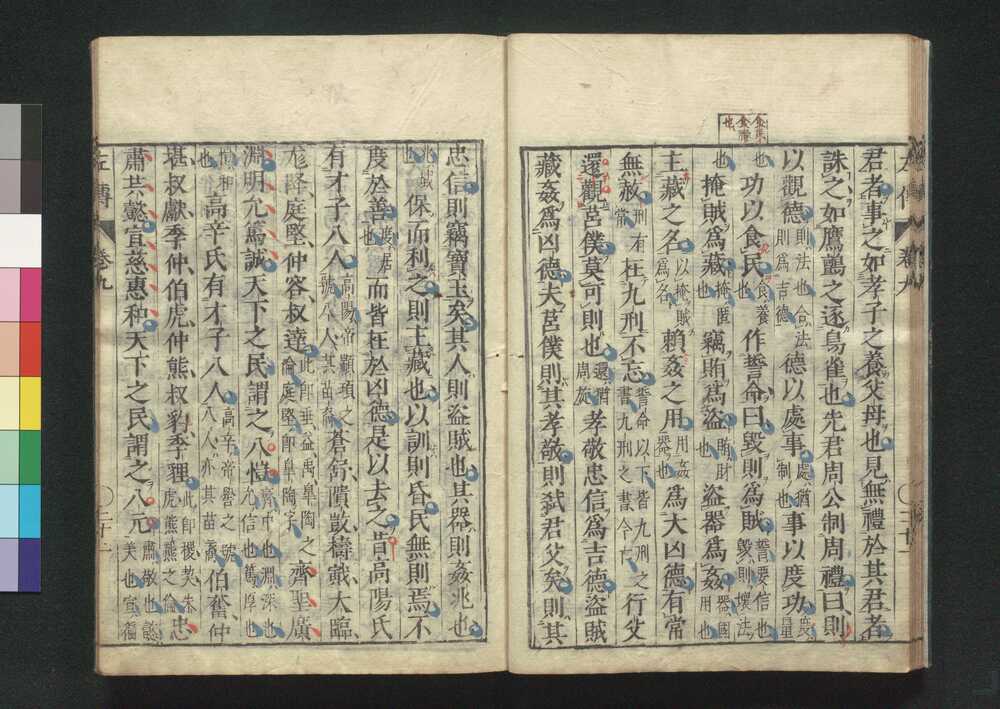 君者事之如孝子之養父母也見無禮於其君者
誅之如鷹鸇之逐鳥雀也先君周公制周禮曰則
以觀德則法也合法則爲吉德德以處事處猶制也事以度功度量
也功以食民食養也作誓命曰毀則爲賊誓要信也毀則壞法
也掩賊爲藏掩匿也竊賄爲盜賄財也盜器爲姦器國用也
主藏之名以掩賊爲名賴姦之用用姦器也爲大凶德有常
無赦刑有常在九刑不忘誓命以下皆九刑之書九刑之書今亡行父
還觀莒僕莫可則也還猶周旋孝敬忠信爲吉德盜賊
藏姦爲凶德夫莒僕則其孝敬則弒君父矣則其
忠信則竊寶玉矣其人則盜賊也其器則姦兆也
兆域也保而利之則主藏也以訓則昏民無則焉不
度於善度居也而皆在於凶德是以去之昔高陽氏
有才子八人高陽帝顓頊之號八人其苗裔蒼舒隤敳檮戭大臨
尨降庭堅仲容叔達此即垂益禹皐陶之倫庭堅即皐陶字齊聖廣
淵明允篤誠天下之民謂之八愷齊中也淵深也允信也篤厚也
愷和也高辛氏有才子八人高辛帝嚳之號八人亦其苗裔伯奮仲
堪叔獻季仲伯虎仲熊叔豹季貍此即稷契朱虎熊羆之倫忠
肅共懿宣慈惠和天下之民謂之八元肅敬也懿美也宣徧
左傳 卷九 二十二